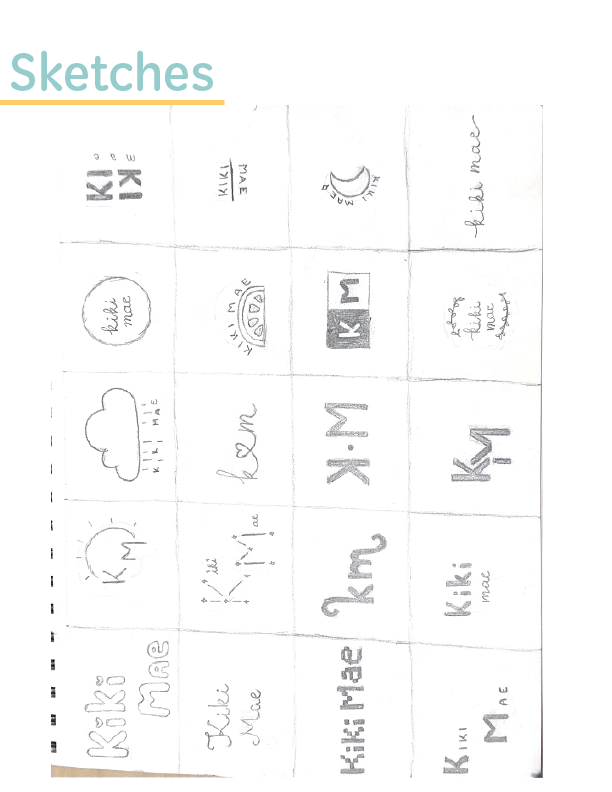 Sketches
KI
KI
mae
KIKI
MAE
KIKI MAE
kiki mae
kiki
mae
KIKI MAE
K M
kiki
mae
KIKI MAE
k♡m
K·M
KM
KM
Kiki
Mae
km
Kiki
mae
Kiki
Mae
Kiki
Mae
Kiki Mae
KIKI
MAE